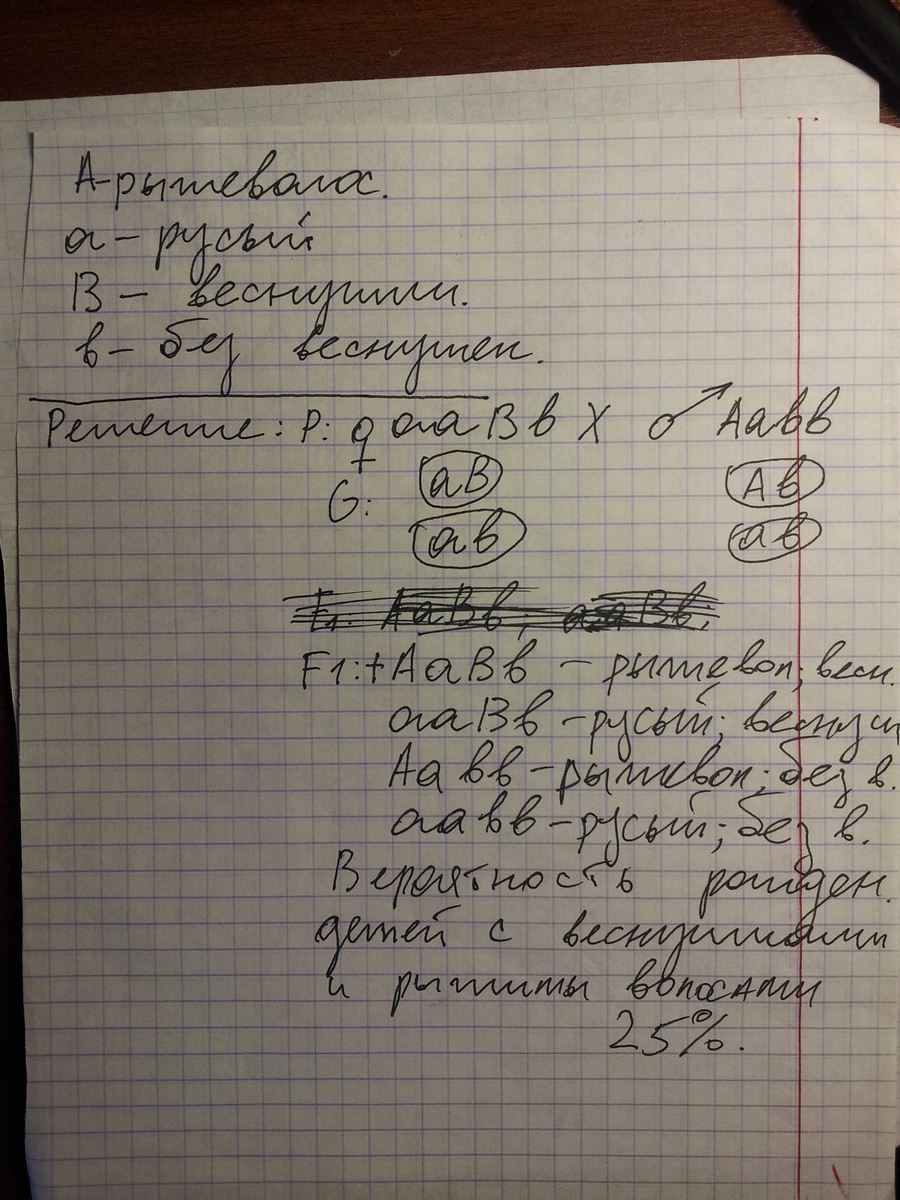 А-рыжеволос.
а - русый
В - веснушки.
в - без веснушек.
Решение: Р: ♀ ааВв X ♂ Аавв
G: аВ Ав
ав ав
F1: АаВв; ааВв;
F1: + АаВв - рыжевол; весн.
ааВв - русый; веснуш
Аавв - рыжевол; без в.
аавв - русый; без в.
Вероятность рожден.
детей с веснушками
и рыжиты волосами
25%.